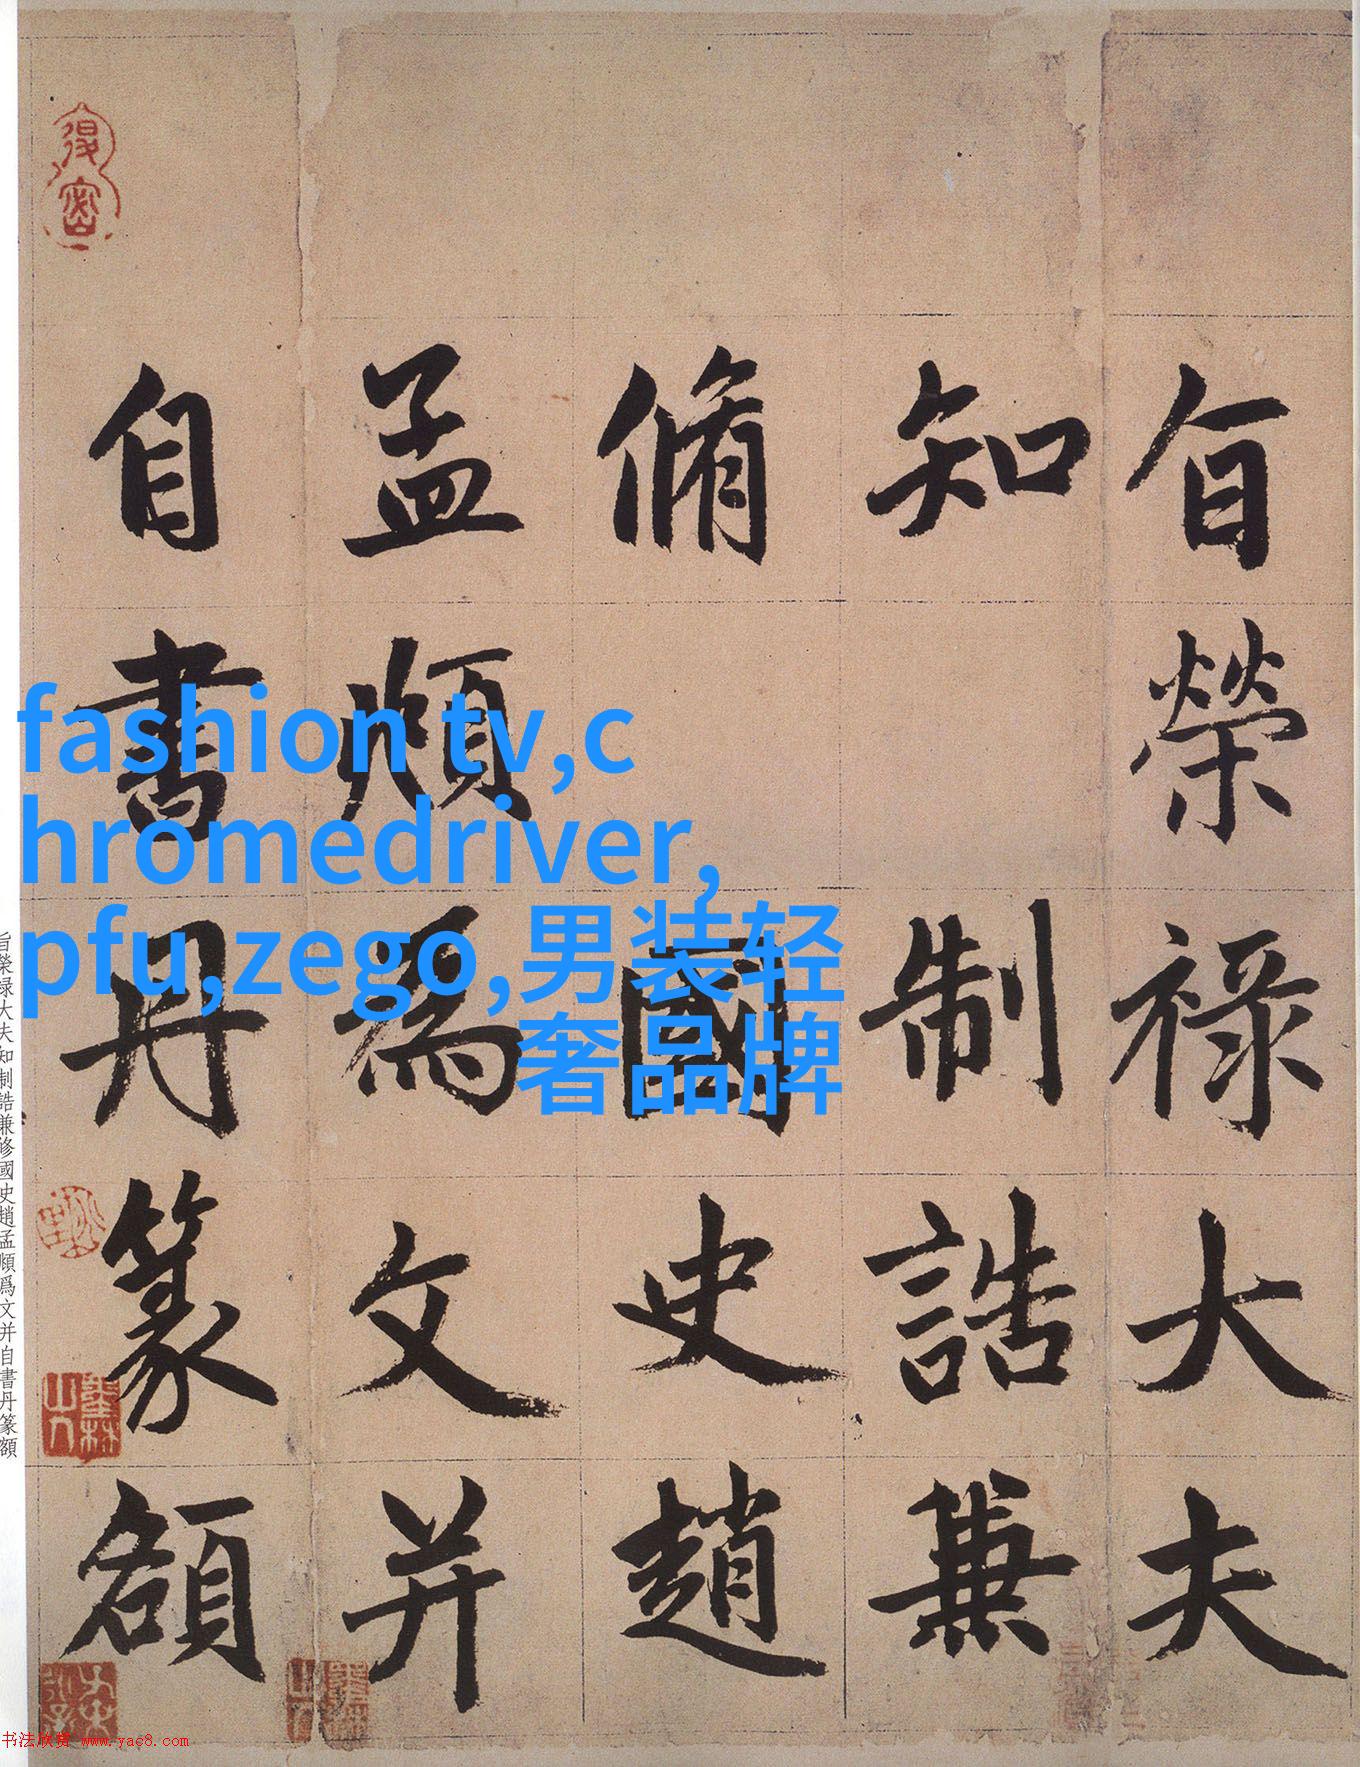 旨榮祿大夫
知制誥兼
脩國史趙
孟頫為文并
自書丹篆額
fashion tv,c
hromedriver,
pfu,zego,男装轻
奢品牌
旨榮禄大夫知制誥兼修國史趙孟頫爲文并自書丹篆額
书法欣赏 www.yac8.com